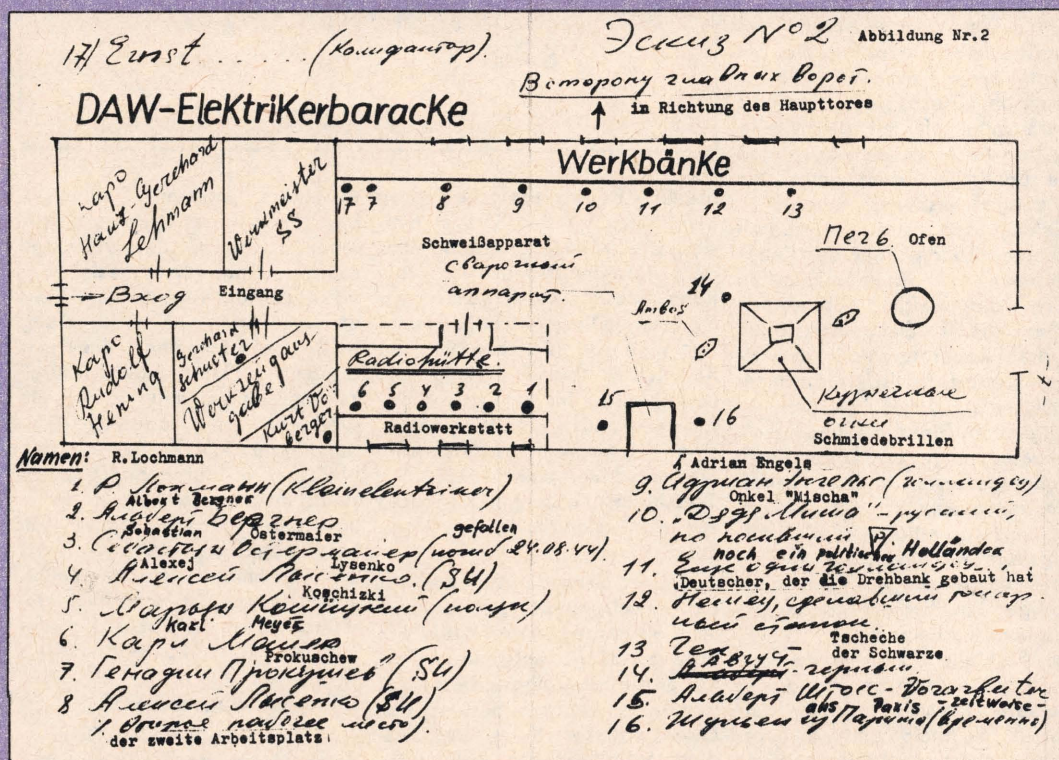 17/ Ernst ...... (Калифактор).
Эскиз №2 Abbildung Nr.2
В сторону главных ворот.
in Richtung des Haupttores
DAW-Elektrikerbaracke
Kapo
Hans-Gerhard
Lehmann
Werkmeister
SS
Werkbänke
17 7 8 9 10 11 12 13
Schweißapparat
сварочный
аппарат.
Печь Ofen
14
Amboß
Вход Eingang
Kapo
Rudolf
Hening
Gerhard
Schuster
Werkzeugaus
gabe
Kurt Vo
berger
Radiohütte.
6 5 4 3 2 1
Radiowerkstatt
15
16
Кузнечные
очки
Schmiedebrillen
Namen: R.Lochmann
1. Р. Лохманн (Kleinelentainer)
Albert Bergner
2. Альберт Бергнер
Sebastian Ostermaier gefallen
3. Себастьян Остермайер (погиб 24.08.44)
Alexej Lysenko
4. Алексей Лысенко. (SU)
Koschizki
5. Марьян Кошицкий (поляк)
Karl Meyer
6 Карл Майер
Prokuschew
7. Генадий Прокушев (SU)
8 Алексей Лысенко (SU)
(второе рабочее место).
der zweite Arbeitsplatz
Adrian Engels
9. Адриан Энгельс (голландец)
Onkel "Mischa"
10. "Дядя Миша" - русский,
но носивший
noch ein politischer Holländer
11. Еще один голландец
Deutscher, der die Drehbank gebaut hat
12. Немец, сделавший токар
ный станок.
Tscheche
13 Чех
der Schwarze
14. Август черный
15. Альберт Штосс - Vorarbeiter
aus Paris - zeitweise -
16. Жульен из Парижа (временно)